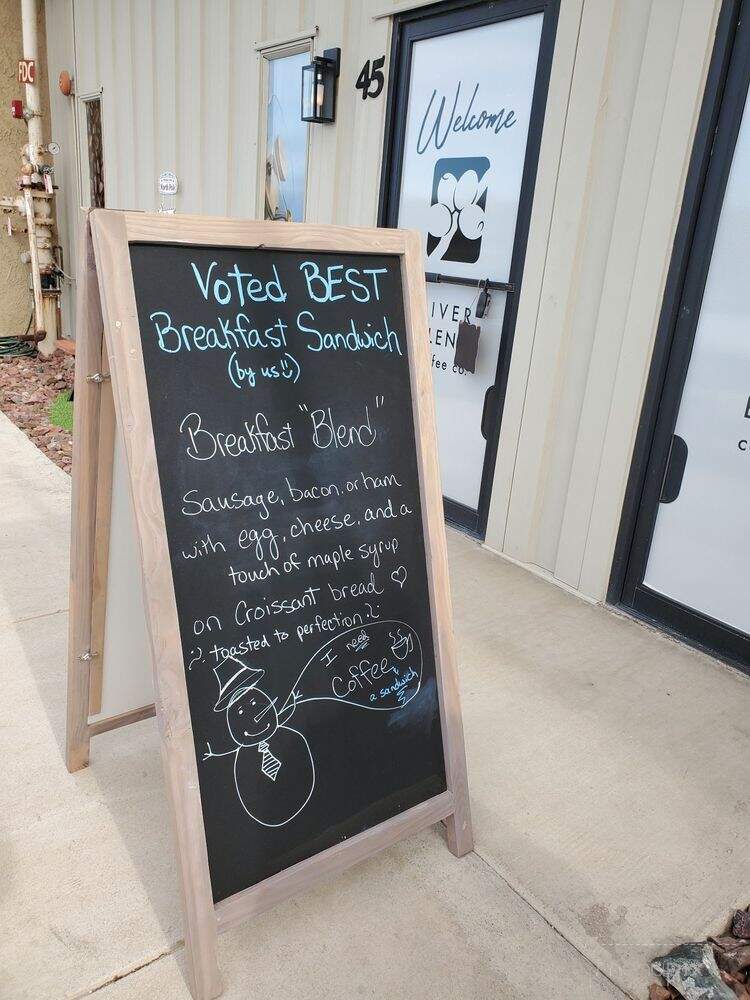 FDC
45
Welcome
North Pole
Voted BEST
Breakfast Sandwich
(by us :))
Breakfast "Blend"
Sausage, bacon, or ham
with egg, cheese, and a
touch of maple syrup
on Croissant bread ♡
toasted to perfection
I need
Coffee &
a sandwich
IVER
LEN
fee co.